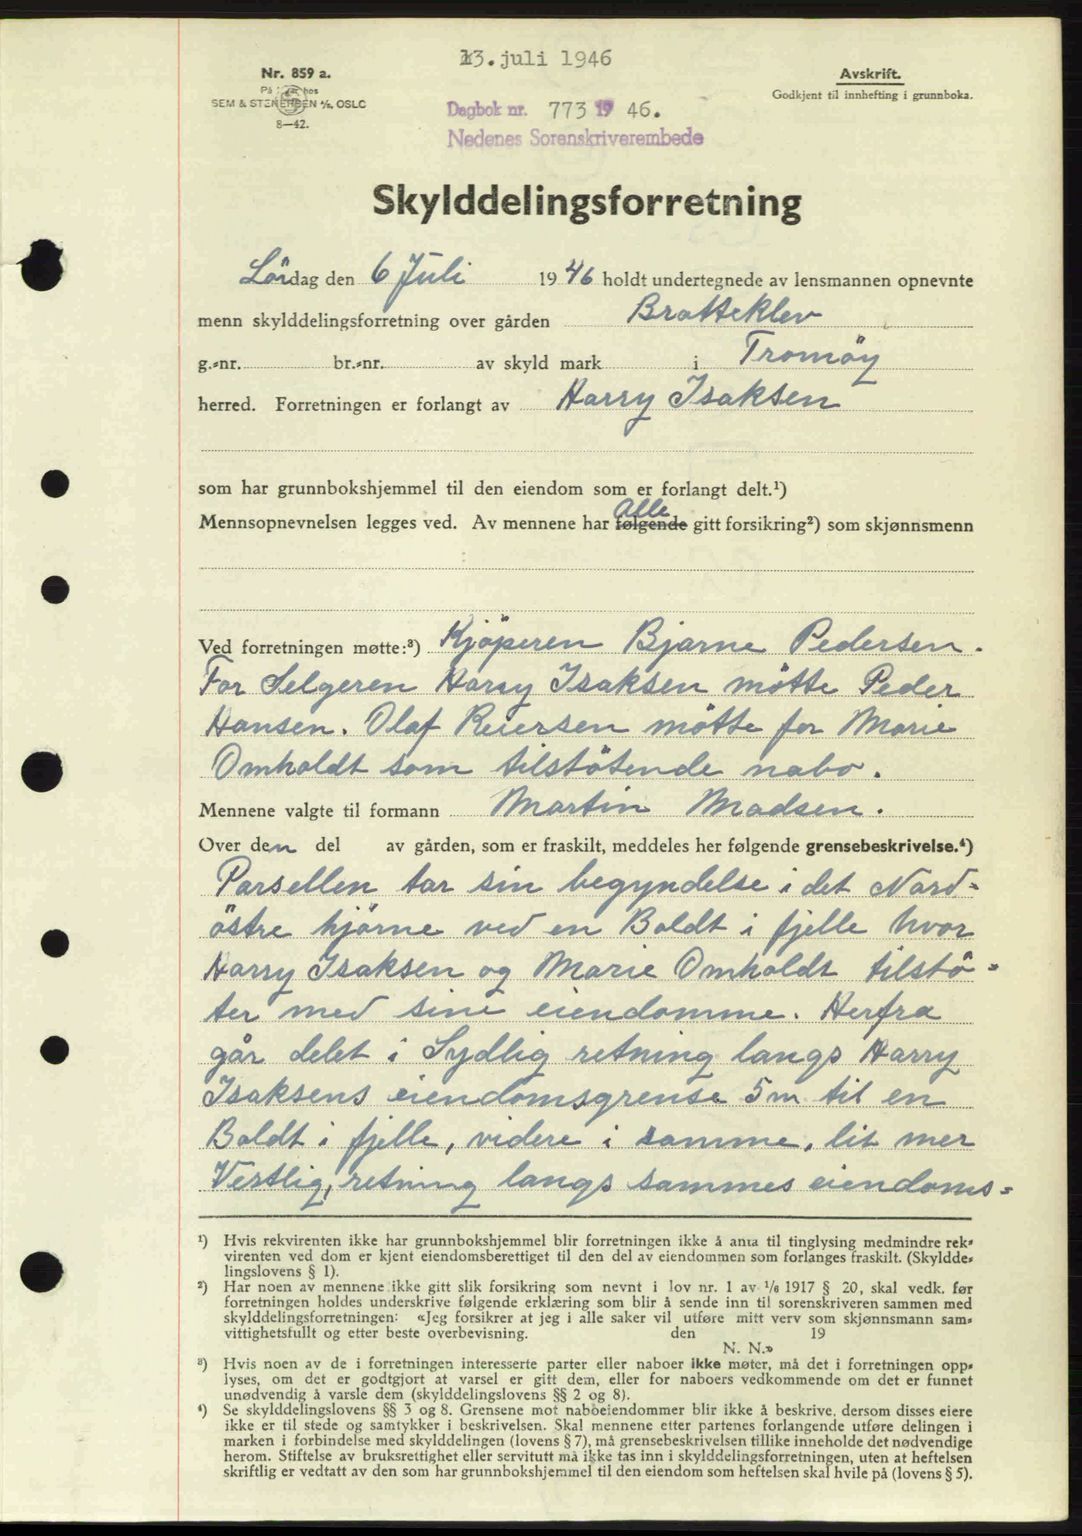 13. juli 1946
Nr. 859 a.
SEM & STENERSEN A/S, OSLO
8—42.
Avskrift.
Godkjent til innhefting i grunnboka.
Dagbok nr. 773 19 46.
Nedenes Sorenskriverembede
Skylddelingsforretning
Lördag den 6 Juli 1946 holdt undertegnede av lensmannen opnevnte
menn skylddelingsforretning over gården Bratteklev
g.-nr. br.-nr. av skyld mark i Tromöy
herred. Forretningen er forlangt av Harry Isaksen
som har grunnbokshjemmel til den eiendom som er forlangt delt.¹)
Alle
Mennsopnevnelsen legges ved. Av mennene har følgende gitt forsikring²) som skjønnsmenn
Ved forretningen møtte:³) Kjöperen Bjarne Pedersen.
For Selgeren Harry Isaksen mötte Peder
Hansen. Olaf Reiersen mötte for Marie
Omholdt som tilstötende nabo.
Mennene valgte til formann Martin Madsen.
Over den del av gården, som er fraskilt, meddeles her følgende grensebeskrivelse.⁴)
Parsellen tar sin begyndelse i det Nord-
östre hjörne ved en Boldt i fjelle hvor
Harry Isaksen og Marie Omholdt tilstö-
ter med sine eiendomme. Herfra
går delet i Sydlig retning langs Harry
Isaksens eiendomsgrense 5m til en
Boldt i fjelle, videre i samme, lit mer
Vestlig, retning langs sammes eiendoms-
¹) Hvis rekvirenten ikke har grunnbokshjemmel blir forretningen ikke å anta til tinglysing medmindre rek-
virenten ved dom er kjent eiendomsberettiget til den del av eiendommen som forlanges fraskilt. (Skyldde-
lingslovens § 1).
²) Har noen av mennene ikke gitt slik forsikring som nevnt i lov nr. 1 av ¹/₆ 1917 § 20, skal vedk. før
forretningen holdes underskrive følgende erklæring som blir å sende inn til sorenskriveren sammen med
skylddelingsforretningen: «Jeg forsikrer at jeg i alle saker vil utføre mitt verv som skjønnsmann sam-
vittighetsfullt og etter beste overbevisning. den 19
N. N.»
³) Hvis noen av de i forretningen interesserte parter eller naboer ikke møter, må det i forretningen opp-
lyses, om det er godtgjort at varsel er gitt dem, eller for naboers vedkommende om det er funnet
unødvendig å varsle dem (skylddelingslovens §§ 2 og 8).
⁴) Se skylddelingslovens §§ 3 og 8. Grensene mot naboeiendommer blir ikke å beskrive, dersom disses eiere
ikke er til stede og samtykker i beskrivelsen. Skal mennene etter partenes forlangende utføre delingen i
marken i forbindelse med skylddelingen (lovens § 7), må grensebeskrivelsen tillike inneholde det nødvendige
herom. Stiftelse av bruksrettighet eller servitutt må ikke tas inn i skylddelingsforretningen, uten at heftelsen
skriftlig er vedtatt av den som har grunnbokshjemmel til den eiendom som heftelsen skal hvile på (lovens § 5).